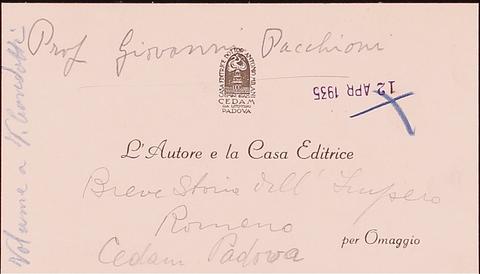 Prof Giovanni Pacchioni
CEDAM
PADOVA
12 APR 1935
L'Autore e la Casa Editrice
Breve Storia dell' Impero
Romano
Cedam Padova
per Omaggio
Volume a